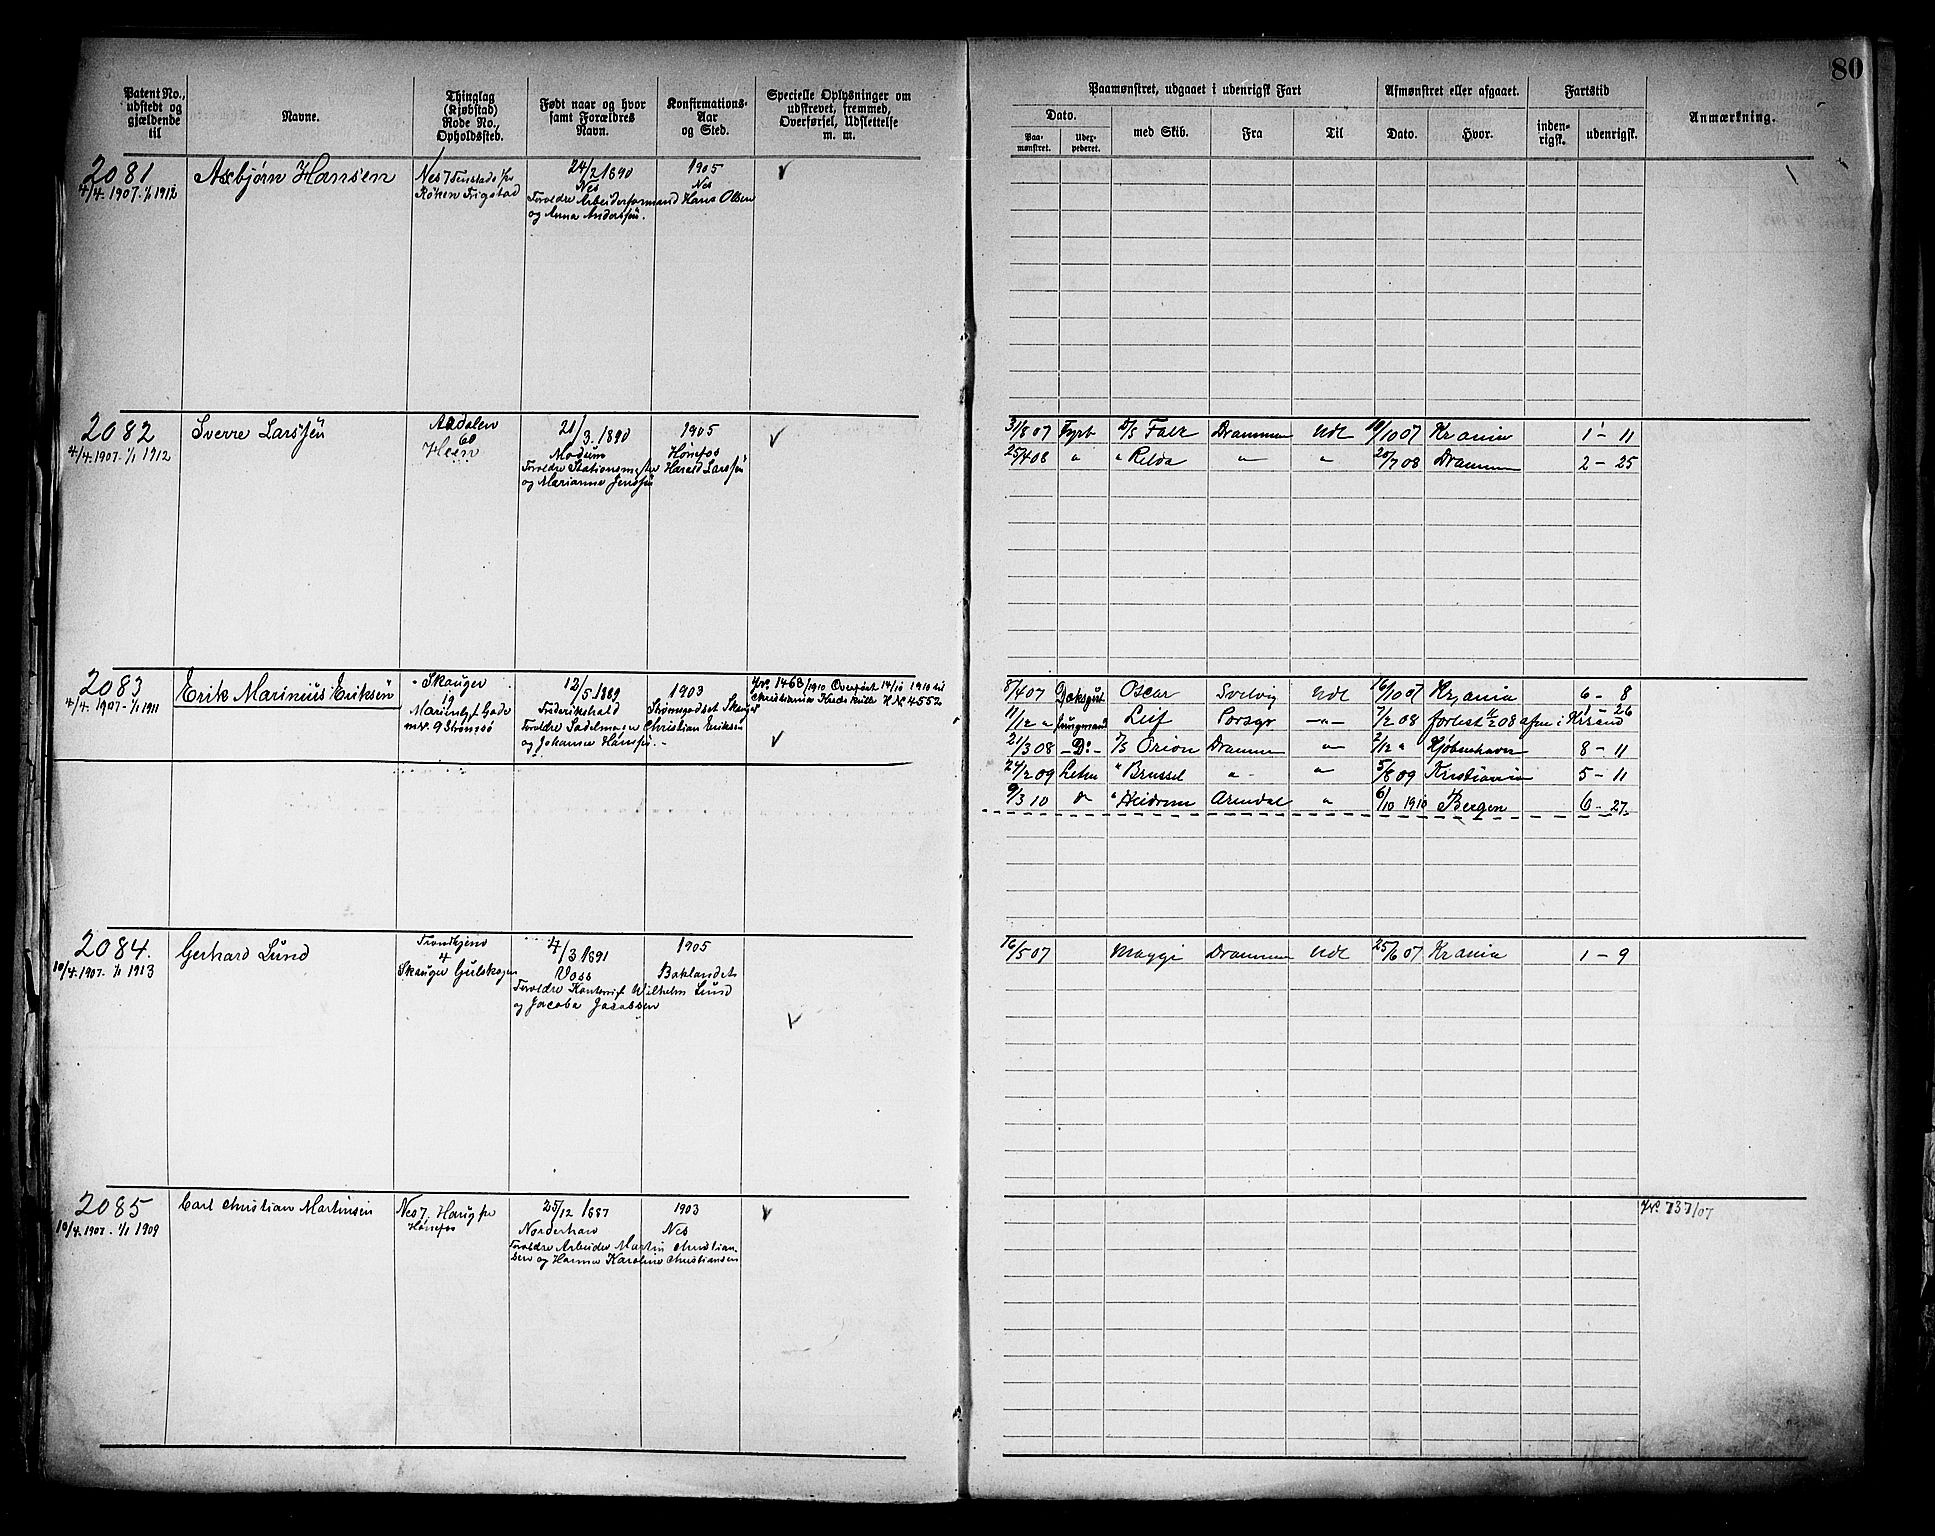 80
Patent No., udstedt og gjældende til
Navne.
Thinglag (Kjøbstad) Rode No., Opholdssteb.
Født naar og hvor samt Forældres Navn.
Konfirmations-Aar og Sted.
Specielle Oplysninger om udskrevet, fremmed, Overførsel, Udslettelse m. m.
Paamønstret, udgaaet i udenrigsk Fart
Afmønstret eller afgaaet.
Fartstid
Anmærkning.
Dato.
Paa-mønstret.
med Skib.
Fra
Til
Dato.
Hvor.
inden-rigsk.
udenrigsk.
2081
4/4. 1907. 1/1 1912
Asbjørn Hansen
Nes 7
Røken
24/2 1890
Nes
Forældre Arbeiderformand Hans Olsen
og Anna Andersen.
1905
Nes
2082
4/4. 1907. 1/1 1912
Sverre Larssen
Aadalen
60
Heen
21/3. 1890
Modum
Forældre Stationsmester Harald Larssen
og Marianne Jenssen
1905
Hønefos
31/8 07 Fyrb D/S Falk Drammen Udl 10/10 07 Kr.ania 1 - 11
25/4 08 " " Rilda " " 20/7 08 Drammen 2 - 25
2083
4/4. 1907. 1/1 1911
Erik Marinius Eriksen
Skauger
19
Marienlyst Gade
m.v. 9 Strømsø
12/5 1889
Frederikshald
Forældre Sadelmager Christian Eriksen
og Johanne Hansen.
1903
Strømsgodset Skauger
Jr. No. 1463/1910 Overført 14/10 1910 til
Christiania Kreds Rulle H No 4552
8/4 07 Dæksgut Oscar Svelvig Udl 16/10 07 Kr.ania 6 - 8
11/12 " Jungmand Leif Porsgr -"- 7/2 08 forlist 11/2 08 afm i Krsand 1 - 26
21/3 08 - Do - D/S Orion Drammen " 2/12 " Kjøbenhavn 8 - 11
24/2 09 Letm " Brussel " " 5/8 09 Kristiania 5 - 11
9/3 10 " " Heidrun Arendal " 6/10 1910 Bergen 6 - 27
2084.
10/4. 1907. 1/1 1913
Gerhard Lund
Trondhjem
4
Skauger Gulskogen
4/3 1891
Voss
Forældre Kontorist Wilhelm Lund
og Jacoba Jacobsen
1905
Baklandet
16/5 07 Maggi Drammen Udl 25/6 07 Kr.ania 1 - 9
2085
10/4. 1907. 1/1 1909
Carl Christian Martinsen
Nes 7. Haug pr
Hønefos
25/12 1887
Norderhov
Forældre Arbeider Martin Christian-
sen og Hanna Karoline Christiansen
1903
Nes
Jr. No. 737/07